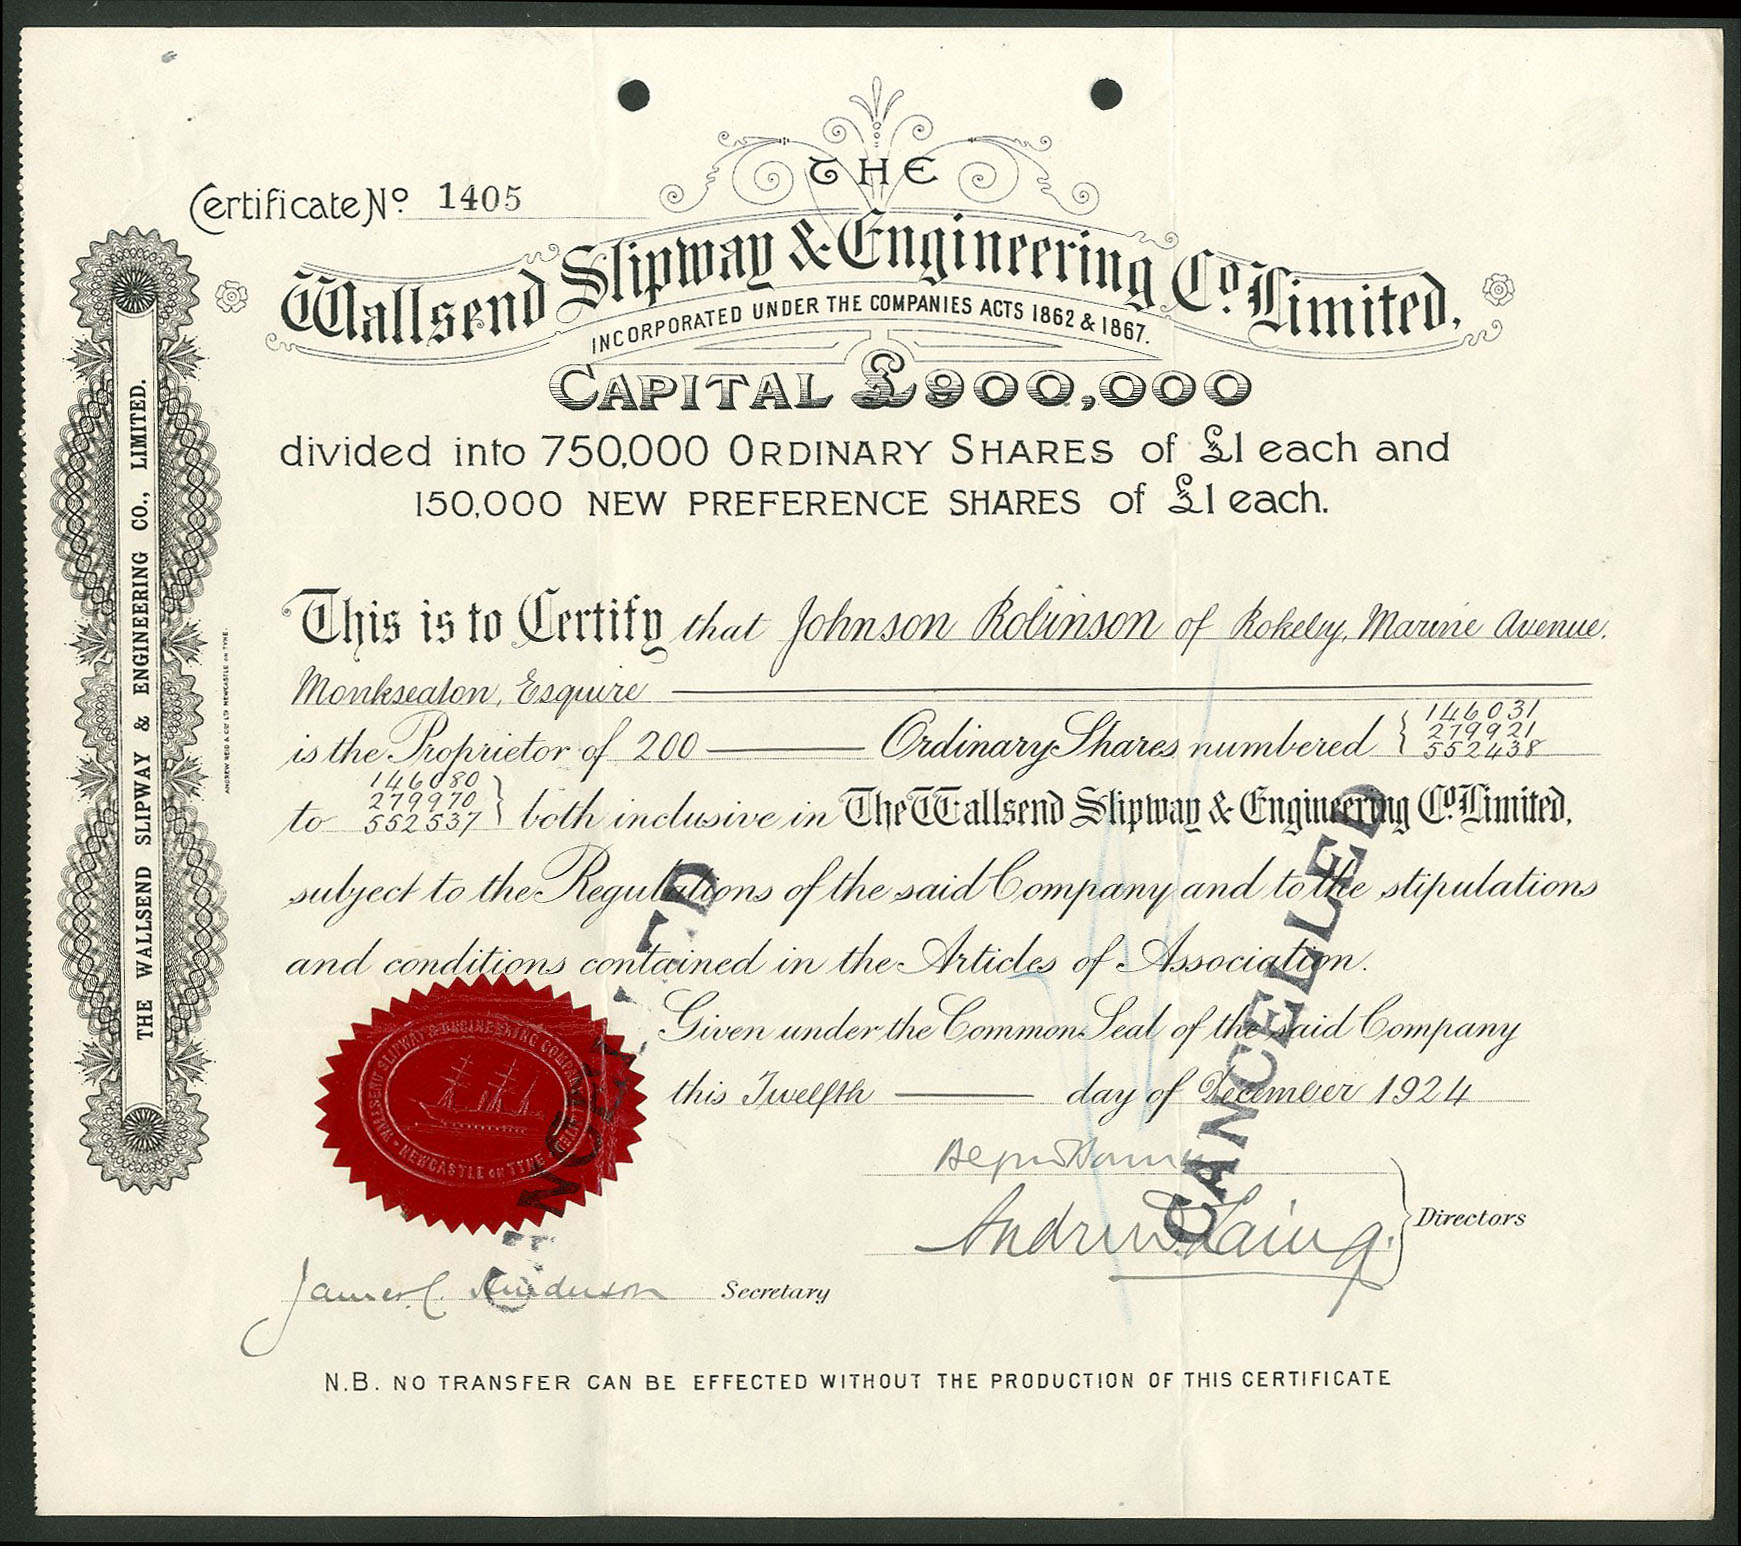 Certificate No. 1405
THE
Wallsend Slipway & Engineering Co. Limited.
INCORPORATED UNDER THE COMPANIES ACTS 1862 & 1867.
CAPITAL £900,000
divided into 750,000 ORDINARY SHARES of £1 each and
150,000 NEW PREFERENCE SHARES of £1 each.
This is to Certify that Johnson Robinson of Rokeby, Marine Avenue.
Monkseaton, Esquire
is the Proprietor of 200 Ordinary Shares numbered
146031
279921
552438
146080
279970
552537
to both inclusive in The Wallsend Slipway & Engineering Co. Limited,
subject to the Regulations of the said Company and to the stipulations
and conditions contained in the Articles of Association.
Given under the Common Seal of the said Company
this Twelfth day of December 1924
Andrew Laing.
Directors
James C. Secretary
N.B. NO TRANSFER CAN BE EFFECTED WITHOUT THE PRODUCTION OF THIS CERTIFICATE
THE WALLSEND SLIPWAY & ENGINEERING CO., LIMITED.
ANDREW REID & CO LTD NEWCASTLE ON TYNE.
WALLSEND SLIPWAY & ENGINEERING COMPANY LIMITED
NEWCASTLE ON TYNE
CANCELLED